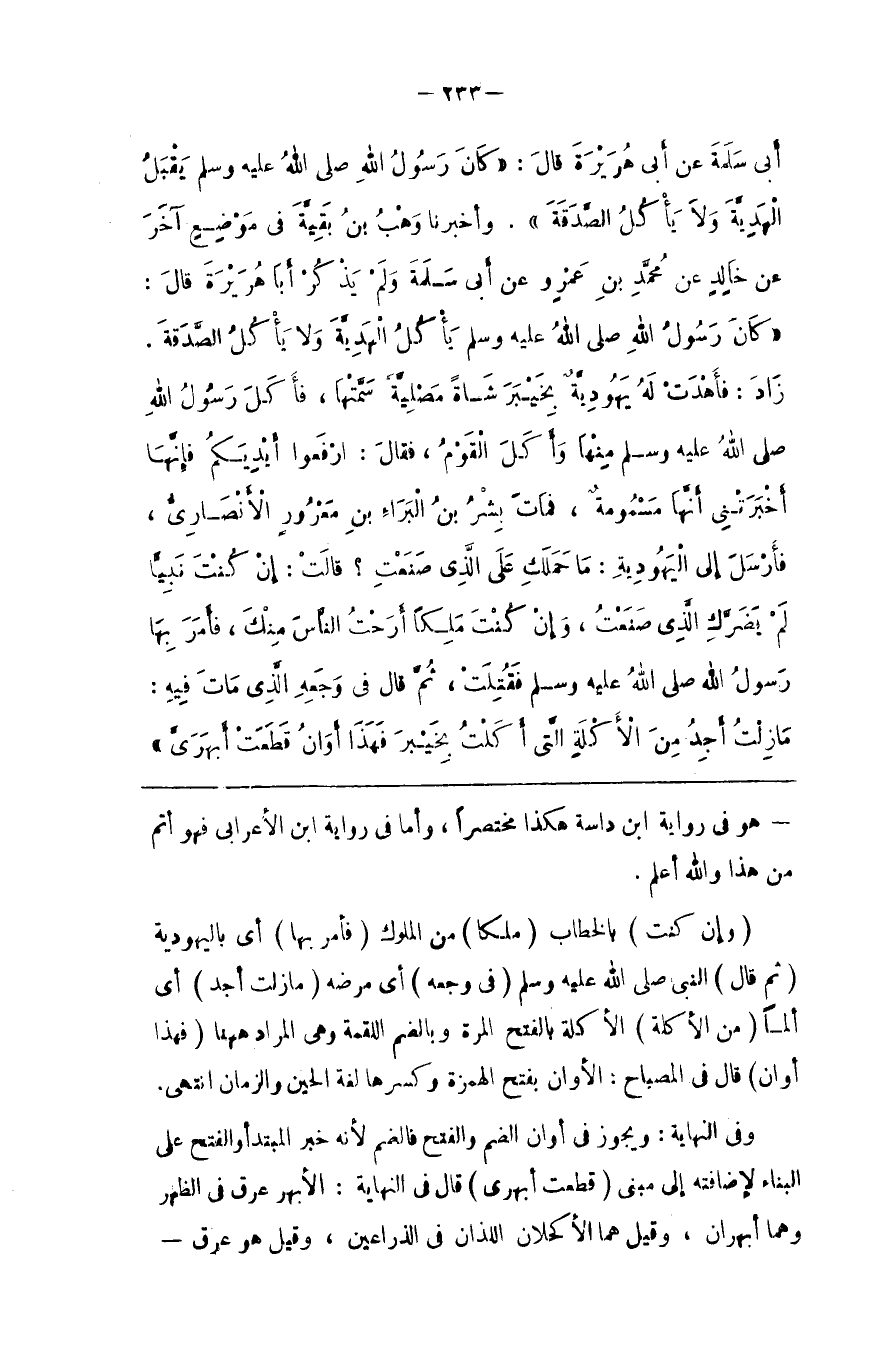 — ٢٣٣ —
أَبِى سَلَمَةَ عن أَبى هُرَيْرَةَ قالَ : «كَانَ رَسُولُ اللهِ صلى اللهُ عليه وسلم يَقْبَلُ
الْهَدِيَّةَ وَلاَ يَأْكُلُ الصَّدَقَةَ » . وأخبرنا وَهْبُ بنُ بَقِيَّةَ فى مَوْضِعٍ آخَرَ
عن خَالِدٍ عن مُحمَّدِ بنِ عَمْرٍو عن أبى سَلَمَةَ وَلَمْ يَذْكُرْ أَبَا هُرَيْرَةَ قالَ :
«كَانَ رَسُولُ اللهِ صلى اللهُ عليه وسلم يَأْكُلُ الْهَدِيَّةَ وَلا يَأْكُلُ الصَّدَقَةَ .
زَادَ : فأَهْدَتْ لَهُ يَهُودِيَّةٌ بِخَيْبَرَ شَاةً مَصْلِيَّةً سَمَّتْهَا ، فأَكَلَ رَسُولُ اللهِ
صلى اللهُ عليه وسلم مِنْهَا وَأَكَلَ الْقَوْمُ ، فقالَ : ارْفَعوا أَيْدِيَكُمُ فإنَّهَا
أَخْبَرَتْنِي أَنَّهَا مَسْمُومةٌ ، فَمَاتَ بِشْرُ بنُ الْبَرَاءِ بنِ مَعْرُورٍ الْأَنْصَارِىُّ ،
فأَرْسَلَ إلى الْيَهُودِيةِ : مَا حَمَلَكِ عَلَى الَّذِى صَنَعْتِ ؟ قالَتْ : إنْ كُنْتَ نَبِيًّا
لَمْ يَضُرَّكَ الَّذِى صَنَعْتُ ، وَإنْ كُنْتَ مَلِكًا أَرَحْتُ النَّاسَ مِنْكَ ، فأَمَرَ بِهَا
رَسولُ الله صلى اللهُ عليه وسلم فَقُتِلَتْ ، ثُمَّ قال فى وَجَعِهِ الَّذِى مَاتَ فِيهِ :
مَازِلْتُ أَجِدُ مِنَ الْأَكْلَةِ الَّتِى أَكَلْتُ بِخَيْبرَ فَهَذَا أَوَانُ قَطَعَتْ أَبْهَرَىَّ »
— هو فى رواية ابن داسة هكذا مختصراً ، وأما فى رواية ابن الأعرابى فهو أتم
من هذا والله أعلم .
( وإن كنت ) بالخطاب ( ملكا ) من الملوك ( فأمر بها ) أى باليهودية
( ثم قال ) النبى صلى الله عليه وسلم ( فى وجعه ) أى مرضه ( مازلت أجد ) أى
ألماً ( من الأكلة ) الأكلة بالفتح المرة وبالضم اللقمة وهى المراد ههنا ( فهذا
أوان) قال فى المصباح : الأوان بفتح الهمزة وكسرها لغة الحين والزمان انتهى.
وفى النهاية : ويجوز فى أوان الضم والفتح فالضم لأنه خبر المبتدأ والفتح على
البناء لإضافته إلى مبنى ( قطعت أبهرى ) قال فى النهاية : الأبهر عرق فى الظهر
وهما أبهران ، وقيل هما الأكحلان اللذان فى الذراعين ، وقيل هو عرق —